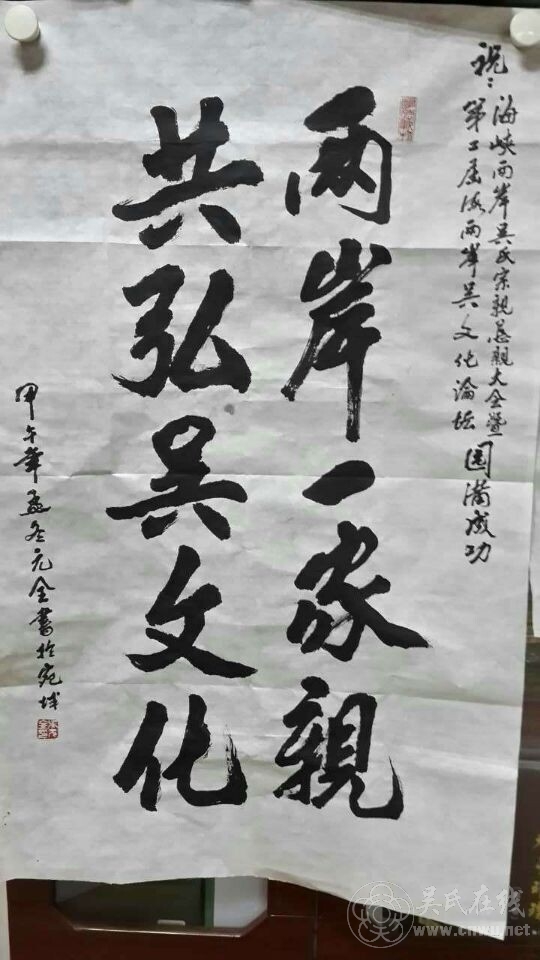 祝：海峡两岸吴氏宗親恳親大会暨
第二届海两岸吴文化论坛 圆满成功
兩岸一家親
共弘吴文化
甲午年孟冬元全書於宛城
吴氏在线
www.cnwu.net